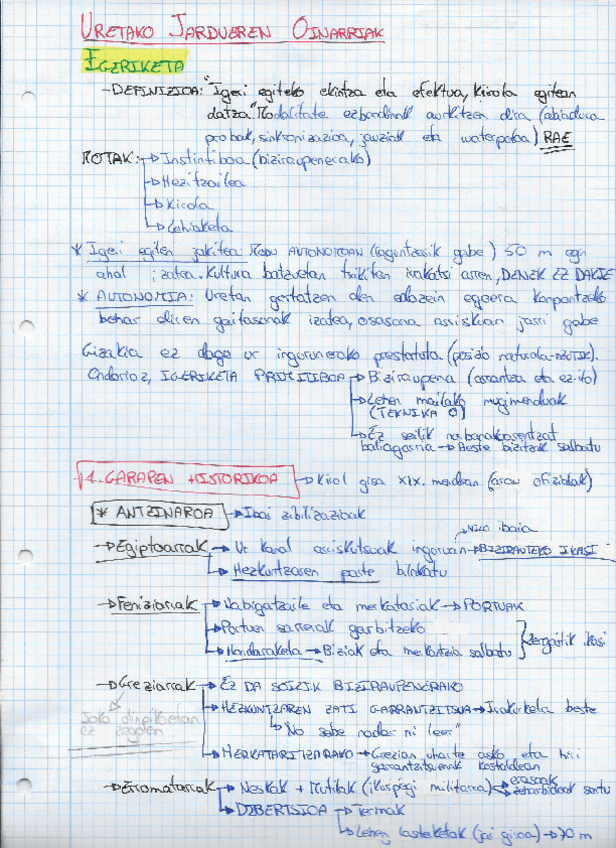 URETAKO JARDUEREN OINARRIAK
IGERIKETA
-DEFINIZIOA: "Igeri egiteko ekintza eta efektua, kirola egitean
datza." Modalitate ezberdinak aurkitzen dira (abiadura
probak, sinkronizazioa, jauziak eta waterpoloa) RAE
MOTAK: → Instintiboa (biziraupenerako)
→ Hezitzailea
→ Kirola
→ Lehiaketa
* Igeri egiten jakitea MODU AUTONOMOAN (laguntzasik gabe) 50 m egin
ahal izatea. Kultura batzuetan txikitan irakatsi arren, DENEK EZ DAKITE
* AUTONOMIA: Uretan gertatzen den edozein egoera konpontzeko
behar diren gaitasonak izatea, osasona arriskuan jarri gabe
Gizakia ez dago ur ingurunerako prestatuta (posizio naturala-
Ondorioz, IGERIKETA PRIMITIBOA → Biziraupena (arrantza eta ehizo)
→ Lehen mailako mugimenduak
(TEKNIKA 0)
→ Ez soilik norbanakoarentzat
baliagarria → Beste bizitzak salbatu
1. GARAPEN HISTORIKOA → Kirol gisa XIX. mendean (arau ofizialak)
* ANTZINAROA → Ibai zibilizazioak
Nilo ibaia
→ Egiptoarrak → Ur kanal arriskutsoak inguruan → BIZIRAUTEKO IKASI
→ Hezkuntzaren parte bihurkatu
→ Feniziarrak → Nabigatzaile eta merkatariak → PORTUAK
→ Portuen sarrerak garbitzeko
→ Hondoraketa → Biziak eta merkantzia salbatu } zergatik ikasi
→ Greziarrak → EZ DA SOILIK BIZIRAUPENERAKO
→ HEZKUNTZAREN ZATI GARRANTZITSUA → Irakurketa beste
Joko olinpikoetan
ez zegoen
"No sabe nadar ni leer"
→ MERKATARITZARAKO → Grezian uharte asko eta hiri
garrantzitsuenak kostaldean
→ Erromatarrak → Neskak + Mutilak (ikuspegi militarra) → erasoak
→ zeharbideak sortu
→ DIBERTSIOA → Termak
→ Lehen lasterketak (jai giroa) → 70 m